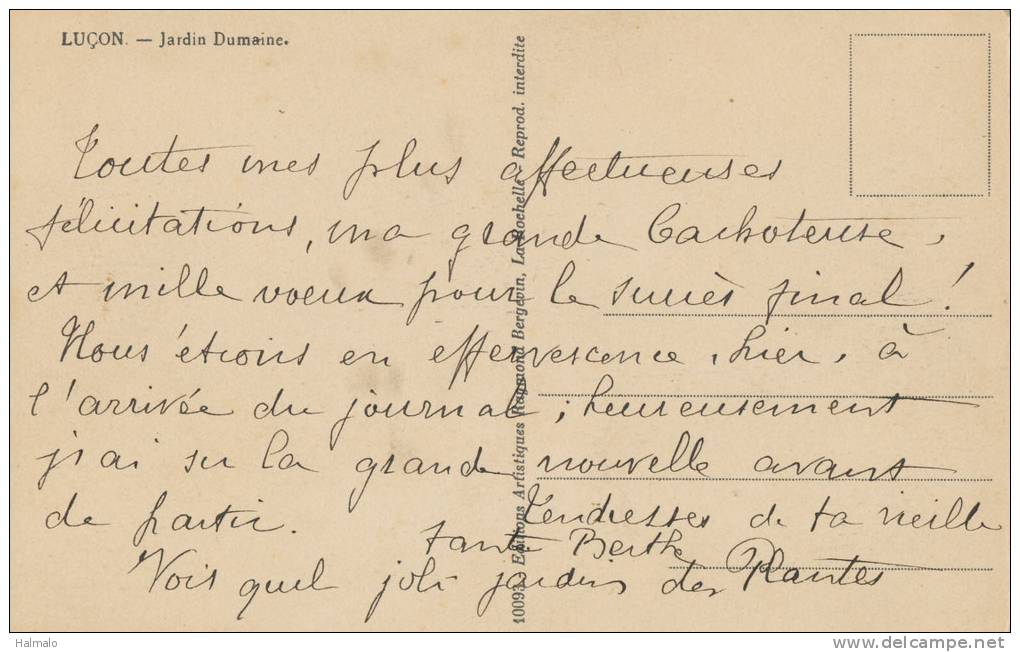 LUÇON. — Jardin Dumaine.
Toutes mes plus affectueuses
félicitations, ma grande Cachoteuse,
et mille voeux pour le succès final !
Nous étions en effervescence, hier, à
l'arrivée du journal ; heureusement
j'ai su la grande nouvelle avant
de partir.
Tendresses de ta vieille
tante Berthe
Vois quel joli jardin des Plantes
Editions Artistiques Raymond Bergevin, La Rochelle - Reprod. interdite
Halmalo
www.delcampe.net